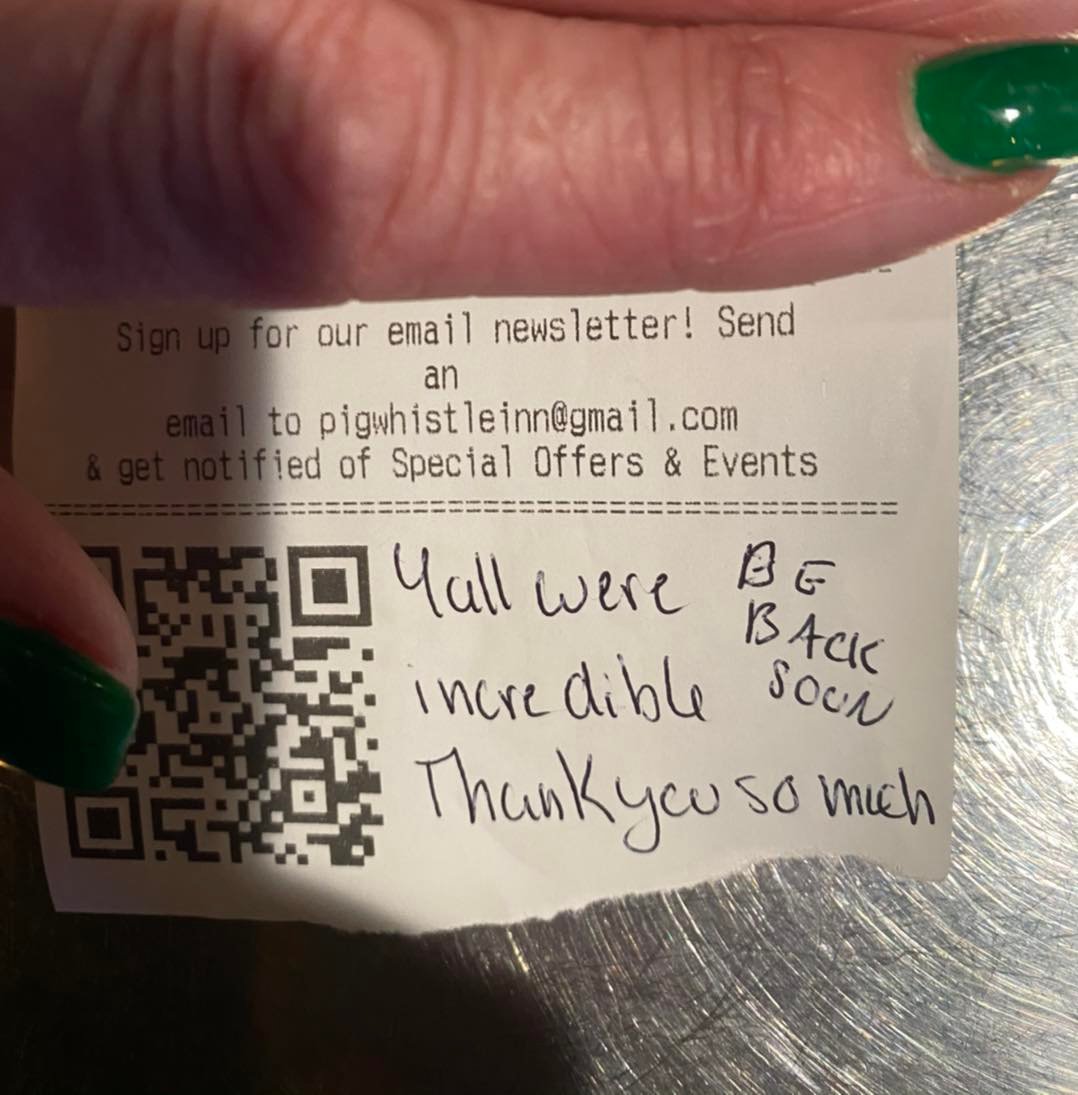 Sign up for our email newsletter! Send
an
email to pigwhistleinn@gmail.com
& get notified of Special Offers & Events
==================================================
Yall were
incredible
Thank you so much
BE
BACK
SOON